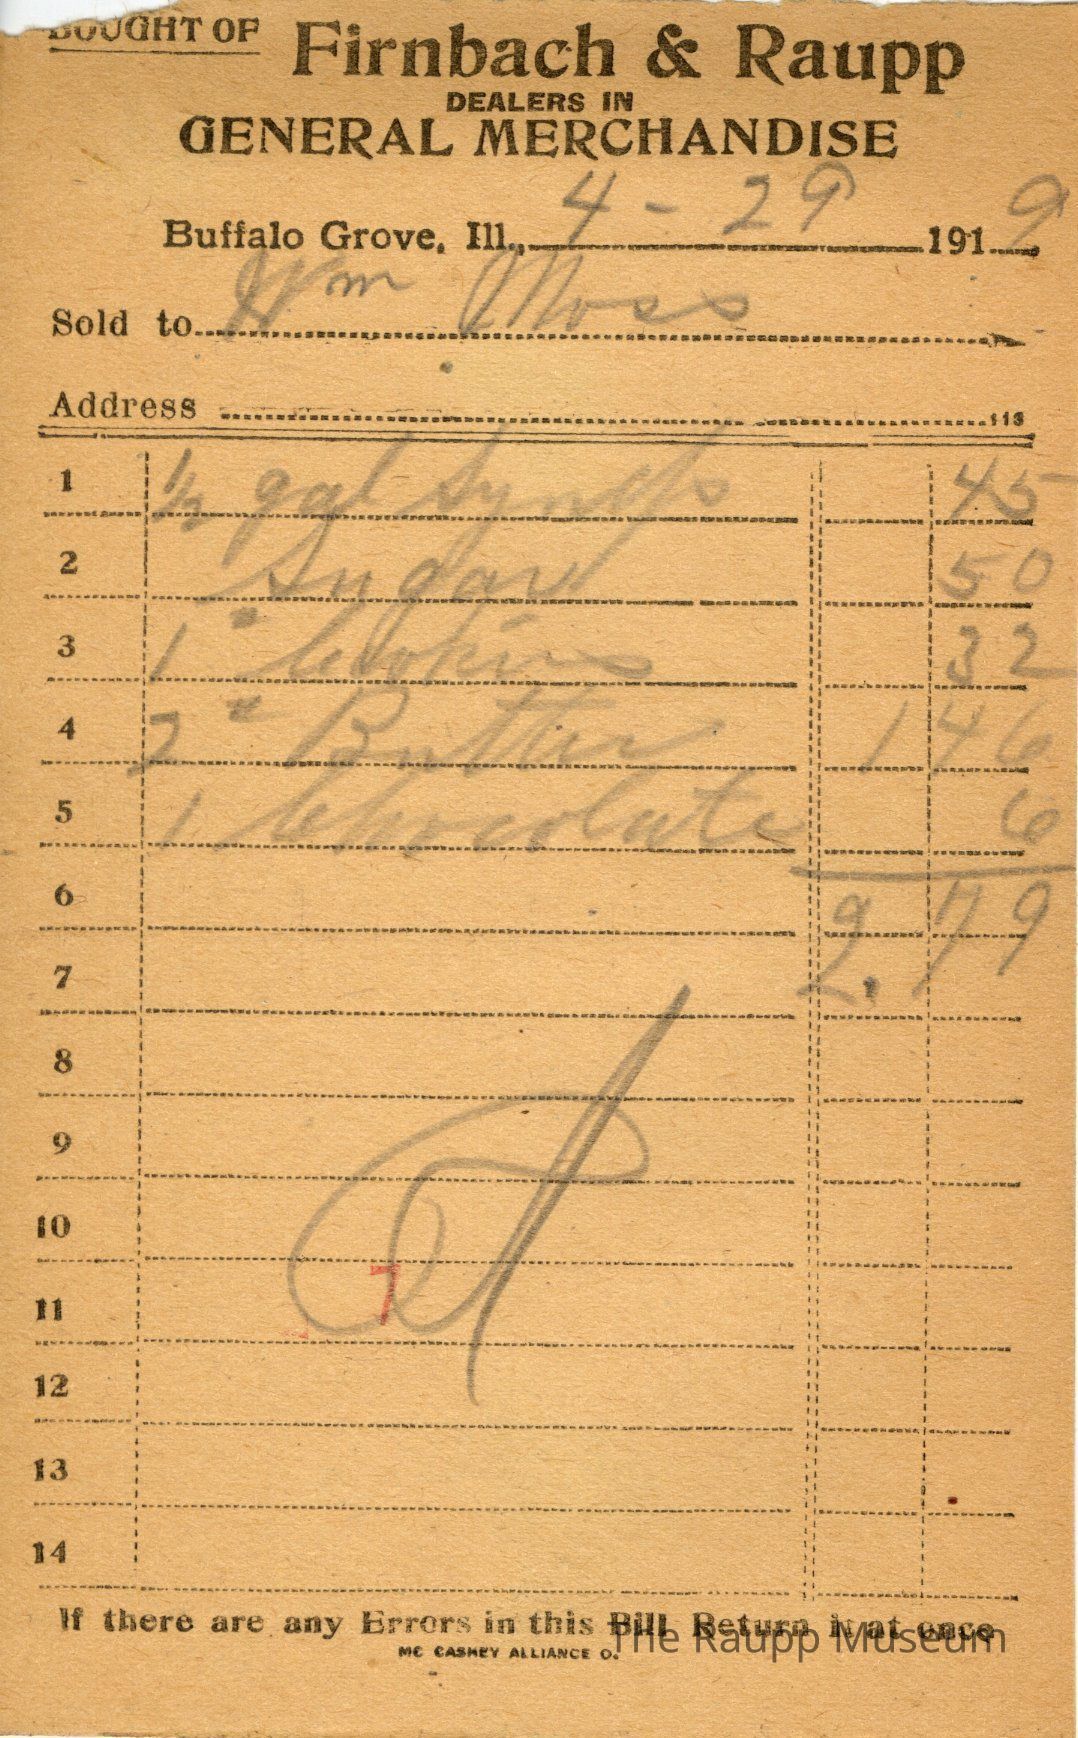 BOUGHT OF Firnbach & Raupp
DEALERS IN
GENERAL MERCHANDISE
Buffalo Grove, Ill., 4 - 29 1919
Sold to Wm Moss
Address 113
1 ½ gal Syrups 45
2 Sugar 50
3 1 " Cookies 32
4 2 " Butter 1 46
5 1 Chocolate 6
6 2.79
7
8
9
10
7
11
12
13
14
If there are any Errors in this Bill Return it at once
MC CASKEY ALLIANCE O.
The Raupp Museum